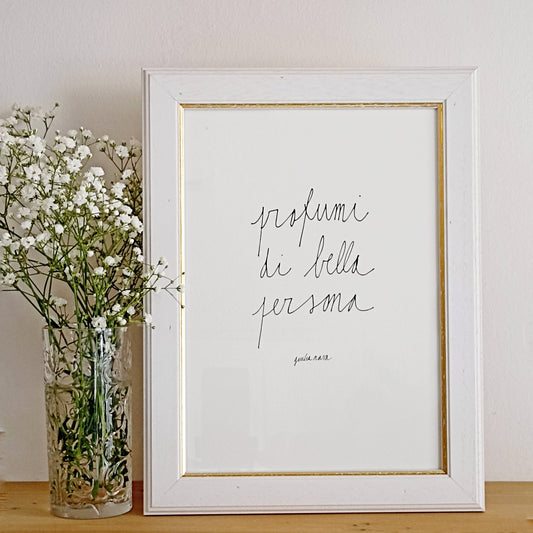 profumi
di bella
persona
giulia rara